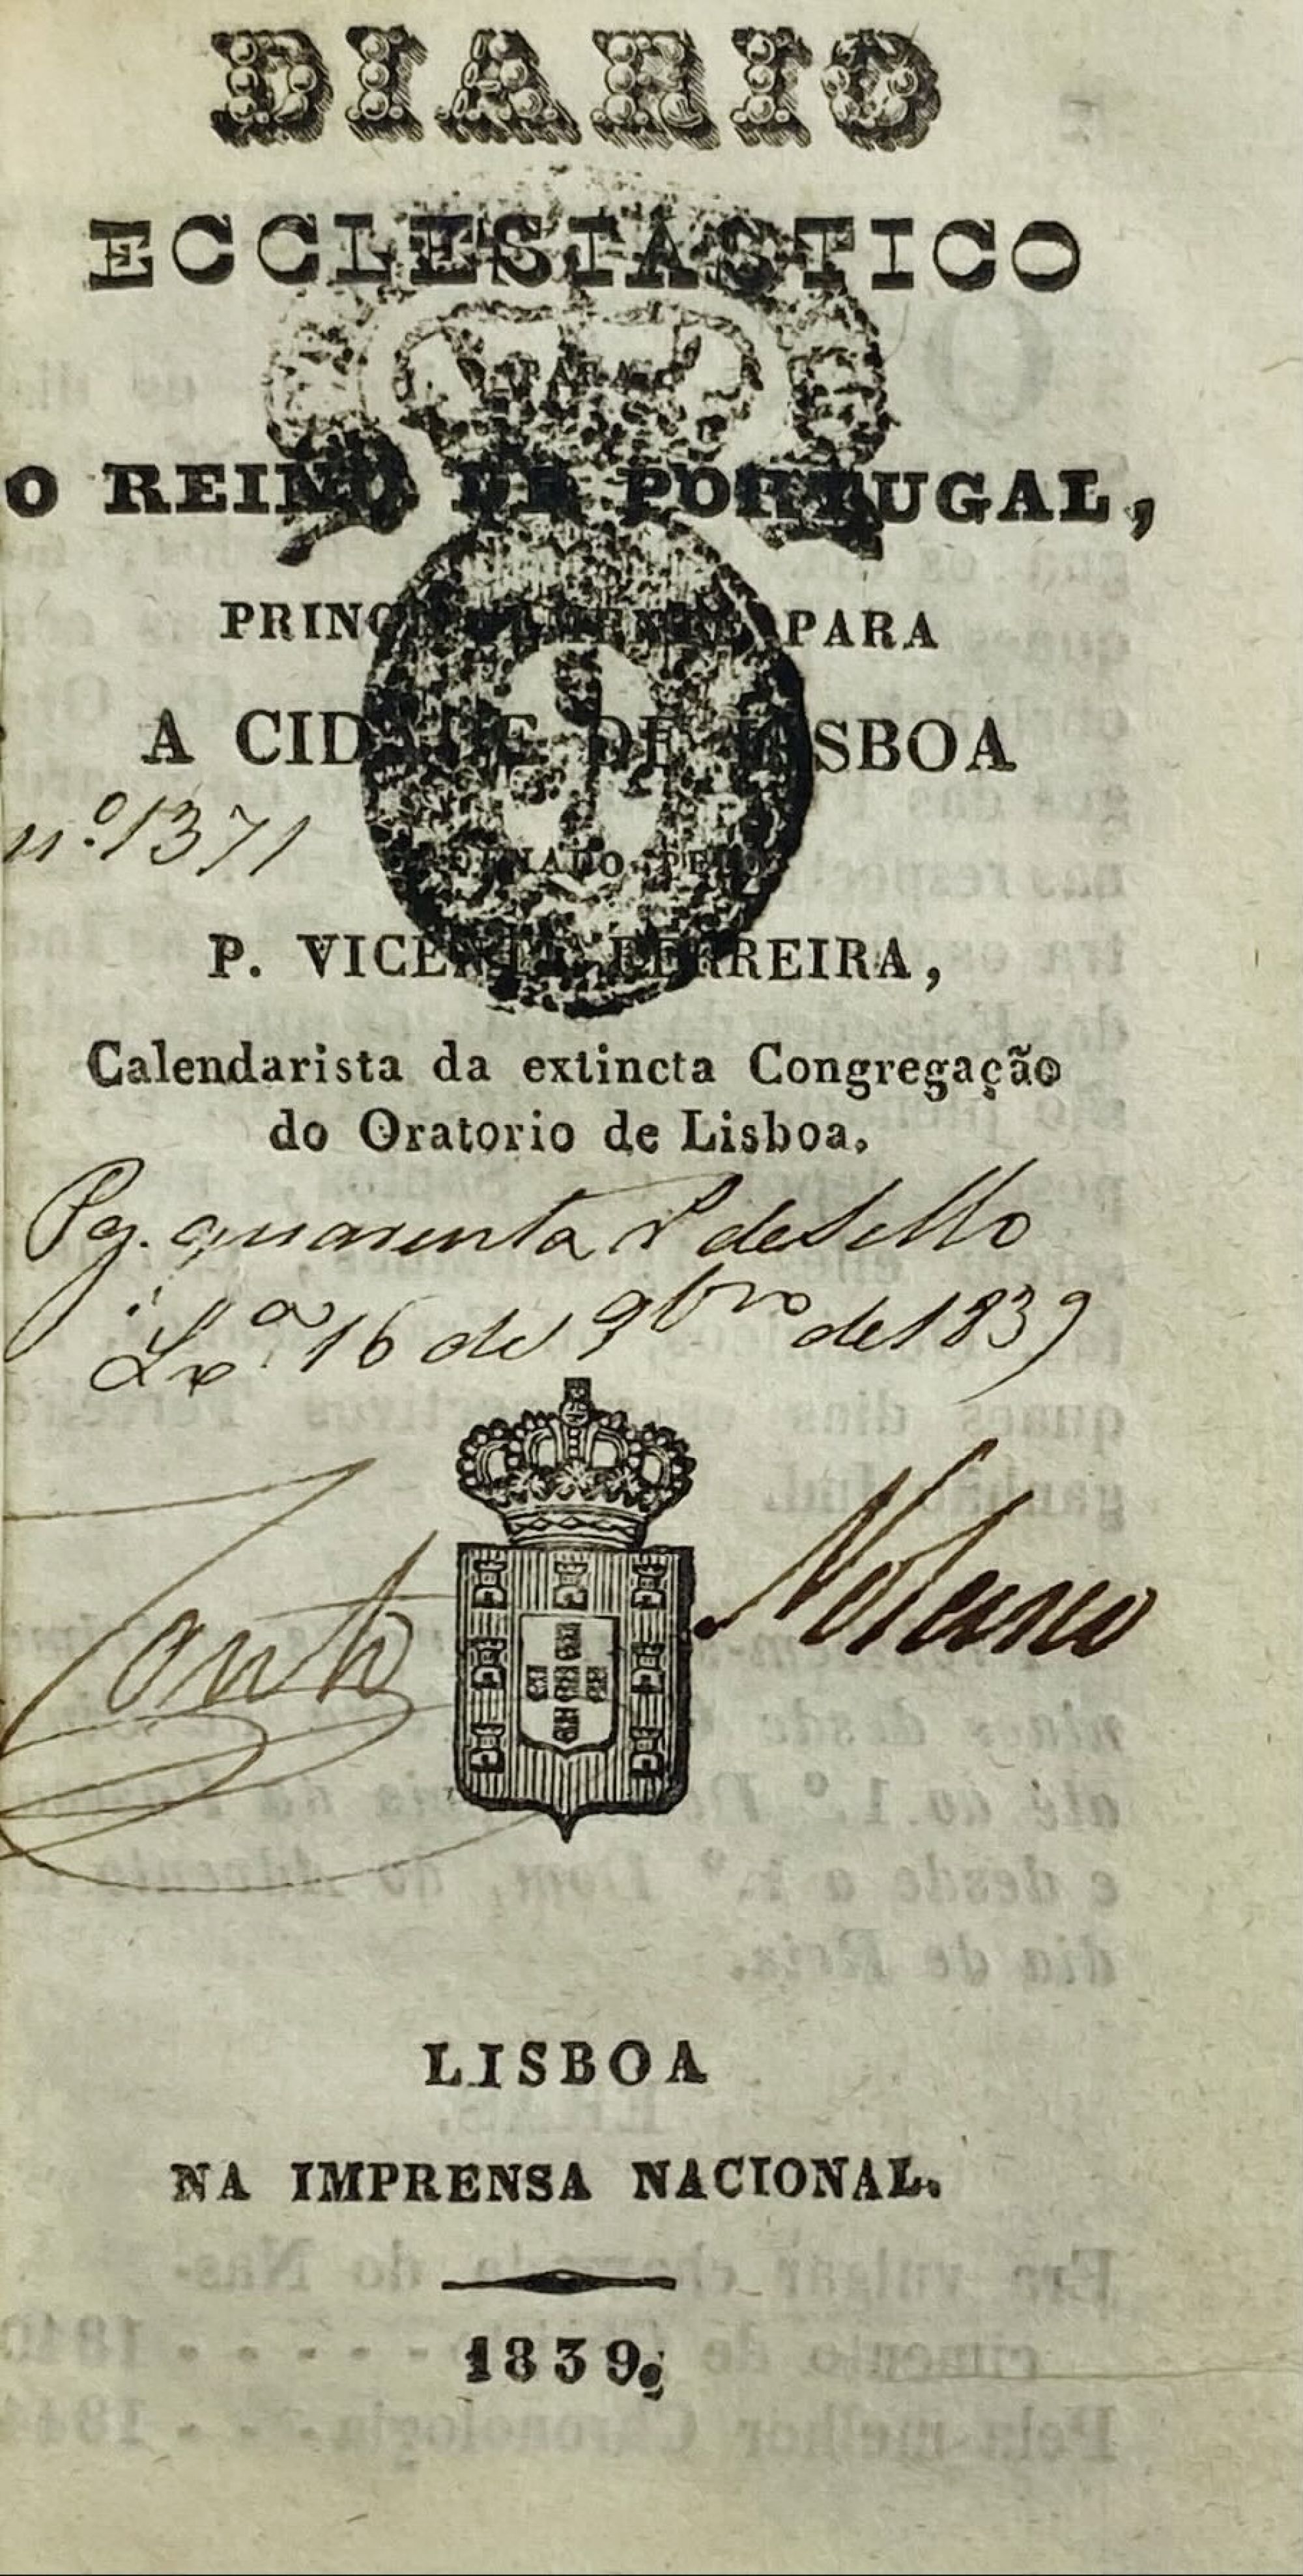 DIARIO
ECCLESIASTICO
PARA
O REINO DE PORTUGAL,
PRINCIPALMENTE PARA
A CIDADE DE LISBOA
n.º 1371
ORDENADO PELO
P. VICENTE FERREIRA,
Calendarista da extincta Congregação
do Oratorio de Lisboa.
Pg. quarenta rs de sello
Lxª 16 de 9bro de 1839
LISBOA
NA IMPRENSA NACIONAL.
1839.